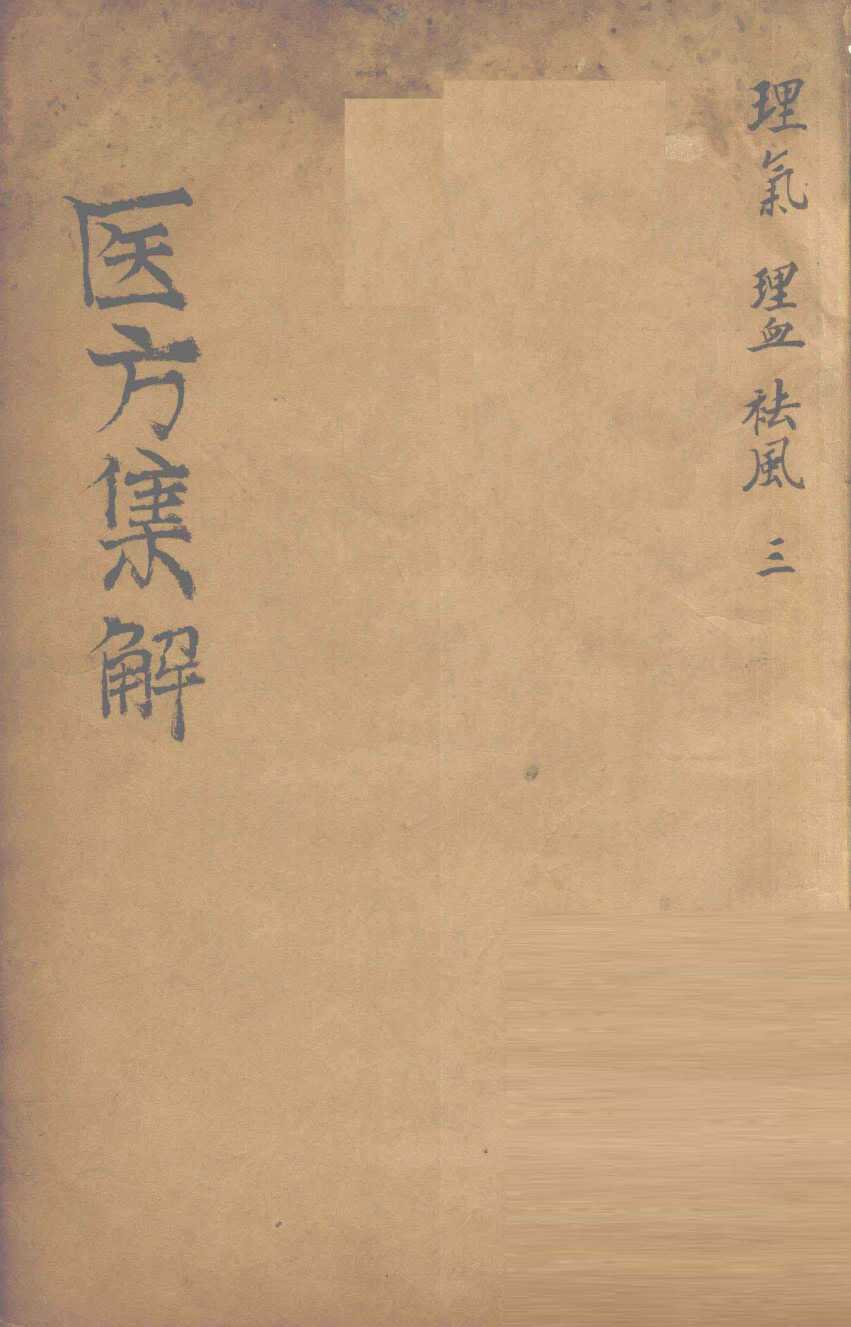 理氣 理血 祛風 三
医方集解